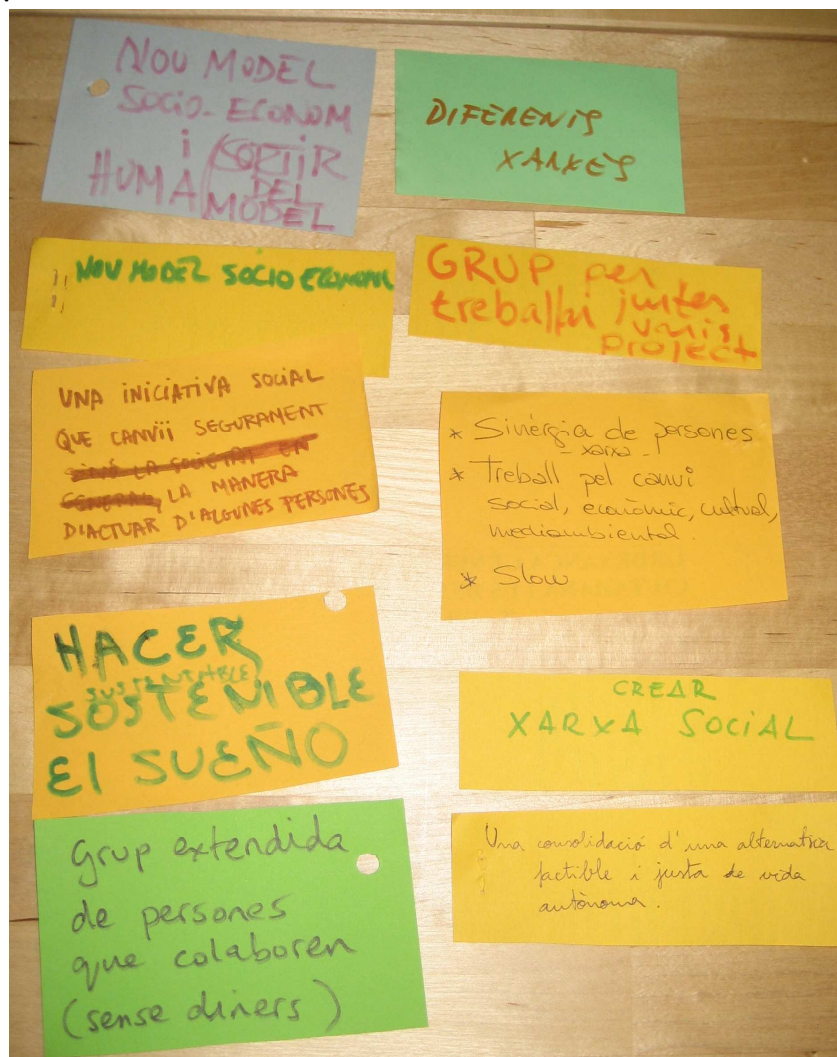 NOU MODEL
SOCIO-ECONOM
i
HUMA (SORTIR
DEL
MODEL
DIFERENTS
XARXES
NOU MODEL SOCIO ECONOMIC
GRUP per
treballar juntes
varis
PROJECT
UNA INICIATIVA SOCIAL
QUE CANVII SEGURAMENT
SINÓ LA SOCIETAT EN
GENERAL, LA MANERA
D'ACTUAR D'ALGUNES PERSONES
* Sinèrgia de persones
- xarxa -
* Treball pel canvi
social, econòmic, cultural,
mediambiental.
* Slow
HACER
SUSTENTABLE
SOSTENIBLE
El SUEÑO
CREAR
XARXA SOCIAL
Grup extendida
de persones
que colaboren
(sense diners)
Una consolidació d'una alternativa
factible i justa de vida
autònoma.